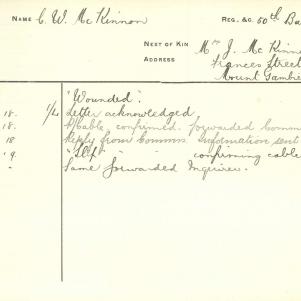 NAME C. W. McKinnon REG. &C. 50th Ba
NEXT OF KIN Mrs J. McKinn
ADDRESS Frances Street
Mount Gambie
"Wounded".
18. Letter acknowledged.
18. Cable confirmed. forwarded Comm
18 Reply from Comms Information sent
19. " " confirming cable
" Same forwarded Inquirer.